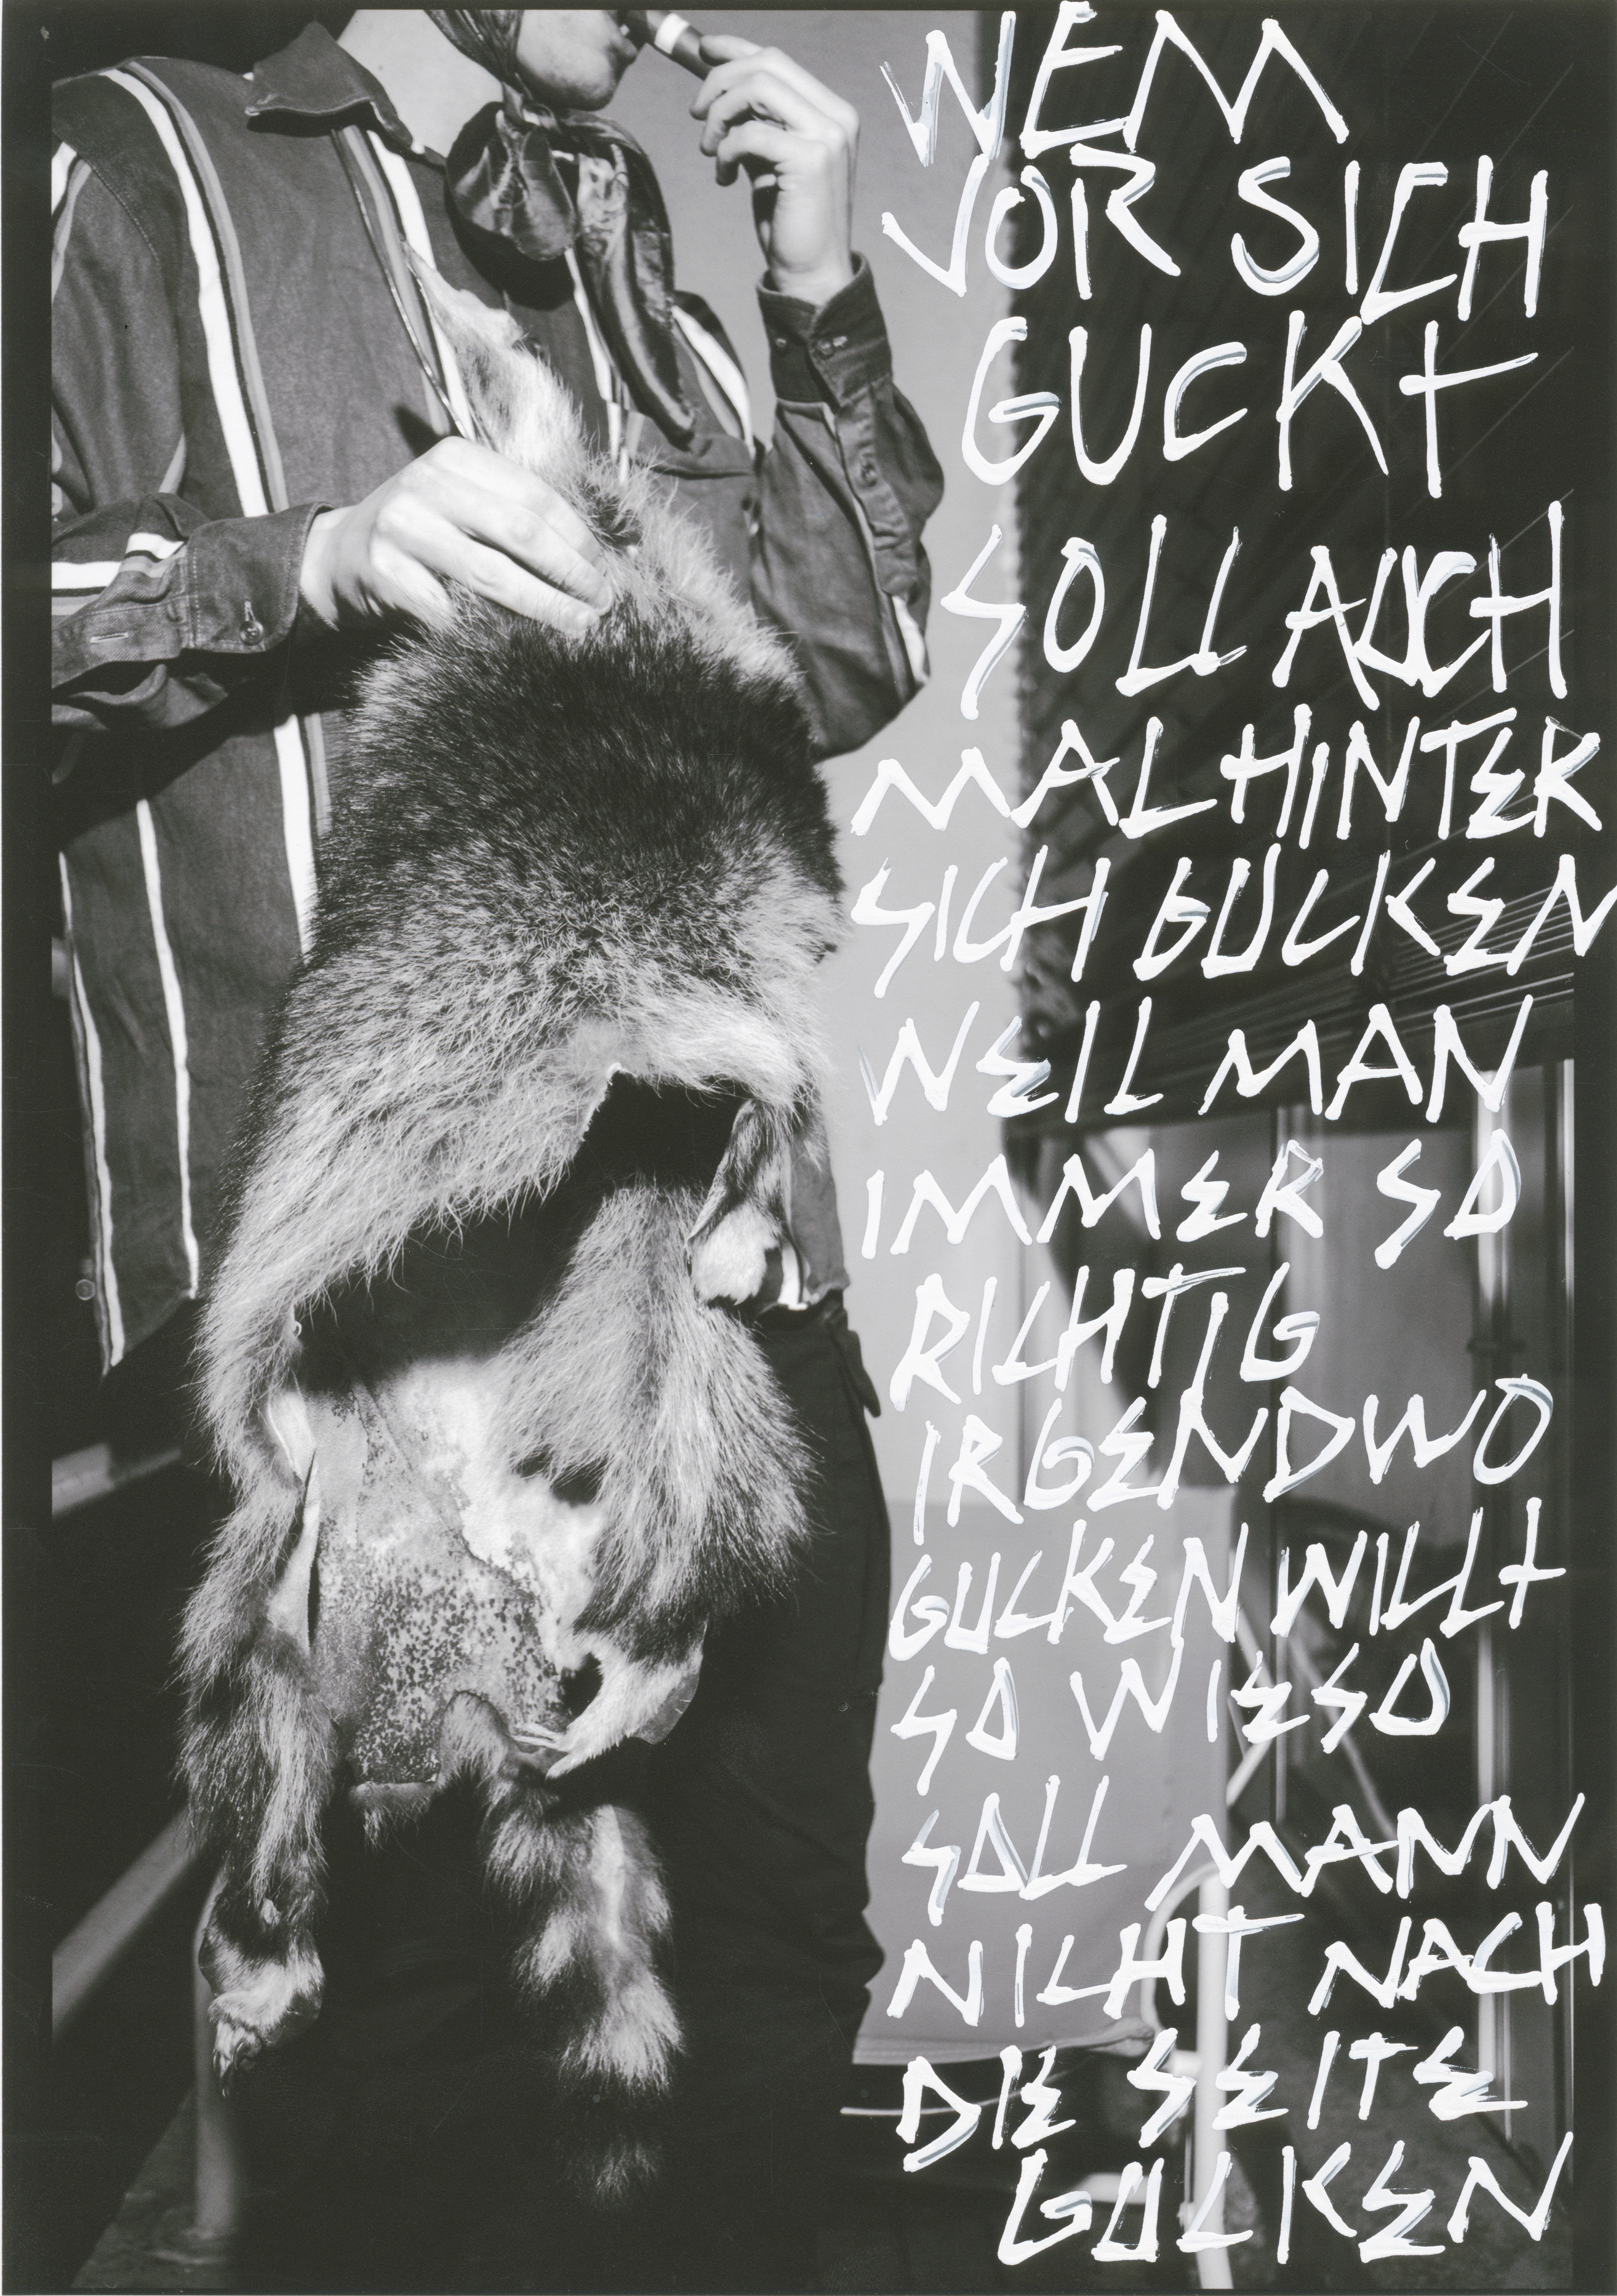 WEM
VOR SICH
GUCKT
SOLL AUCH
MAL HINTER
SICH GUCKEN
WEIL MAN
IMMER SO
RICHTIG
IRGENDWO
GUCKEN WILLT
SO WIESO
SOLL MANN
NICHT NACH
DIE SEITE
GUCKEN